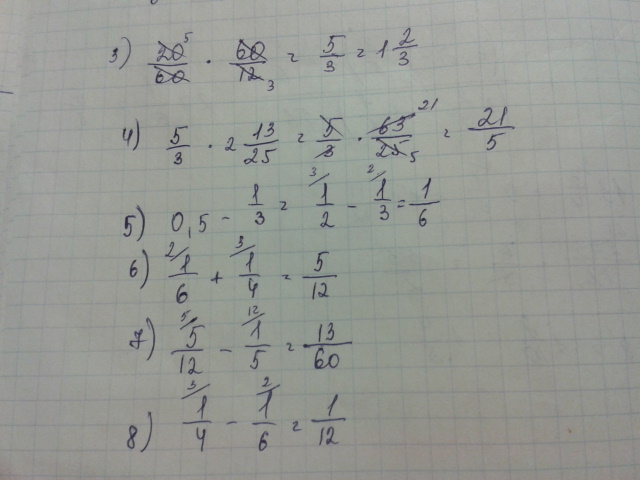 3) 20⁵/60 · 60/12₃ = 5/3 = 1 2/3
4) 5/3 · 2 13/25 = 5/3 · 63²¹/25₅ = 21/5
5) 0,5 - 1/3 = ³⁄1/2 - ²⁄1/3 = 1/6
6) ²⁄1/6 + ³⁄1/4 = 5/12
7) ⁵⁄5/12 - ¹²⁄1/5 = 13/60
8) ³⁄1/4 - ²⁄1/6 = 1/12